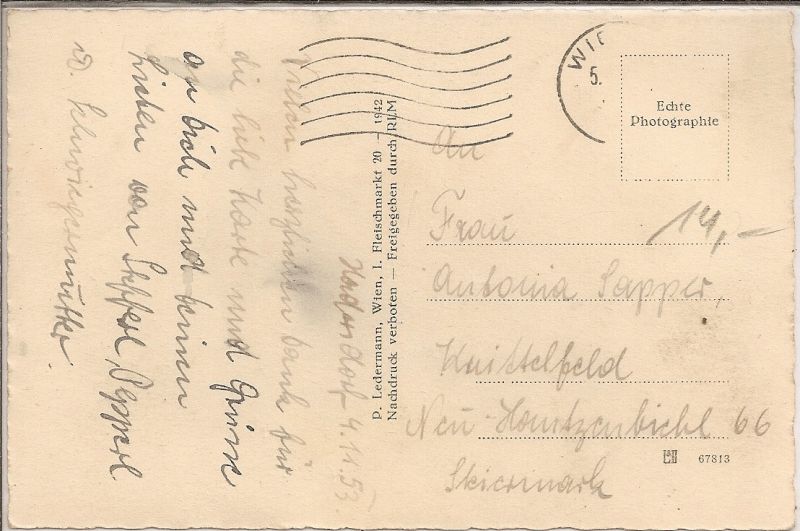 Hadersdorf 4.11.53.
Vielen herzlichen Dank für
die liebe Karte und Grüsse
an Dich und deinen
Lieben von Steffel, Pepperl
u. Schwiegermutter.
P. Ledermann, Wien, I. Fleischmarkt 20 — 1942
Nachdruck verboten — Freigegeben durch RLM
WIE
5.
Echte
Photographie
14,-
An
Frau
Antonia Sapper,
Knittelfeld
Neu-Hautzenbichl 66
Steiermark
67813